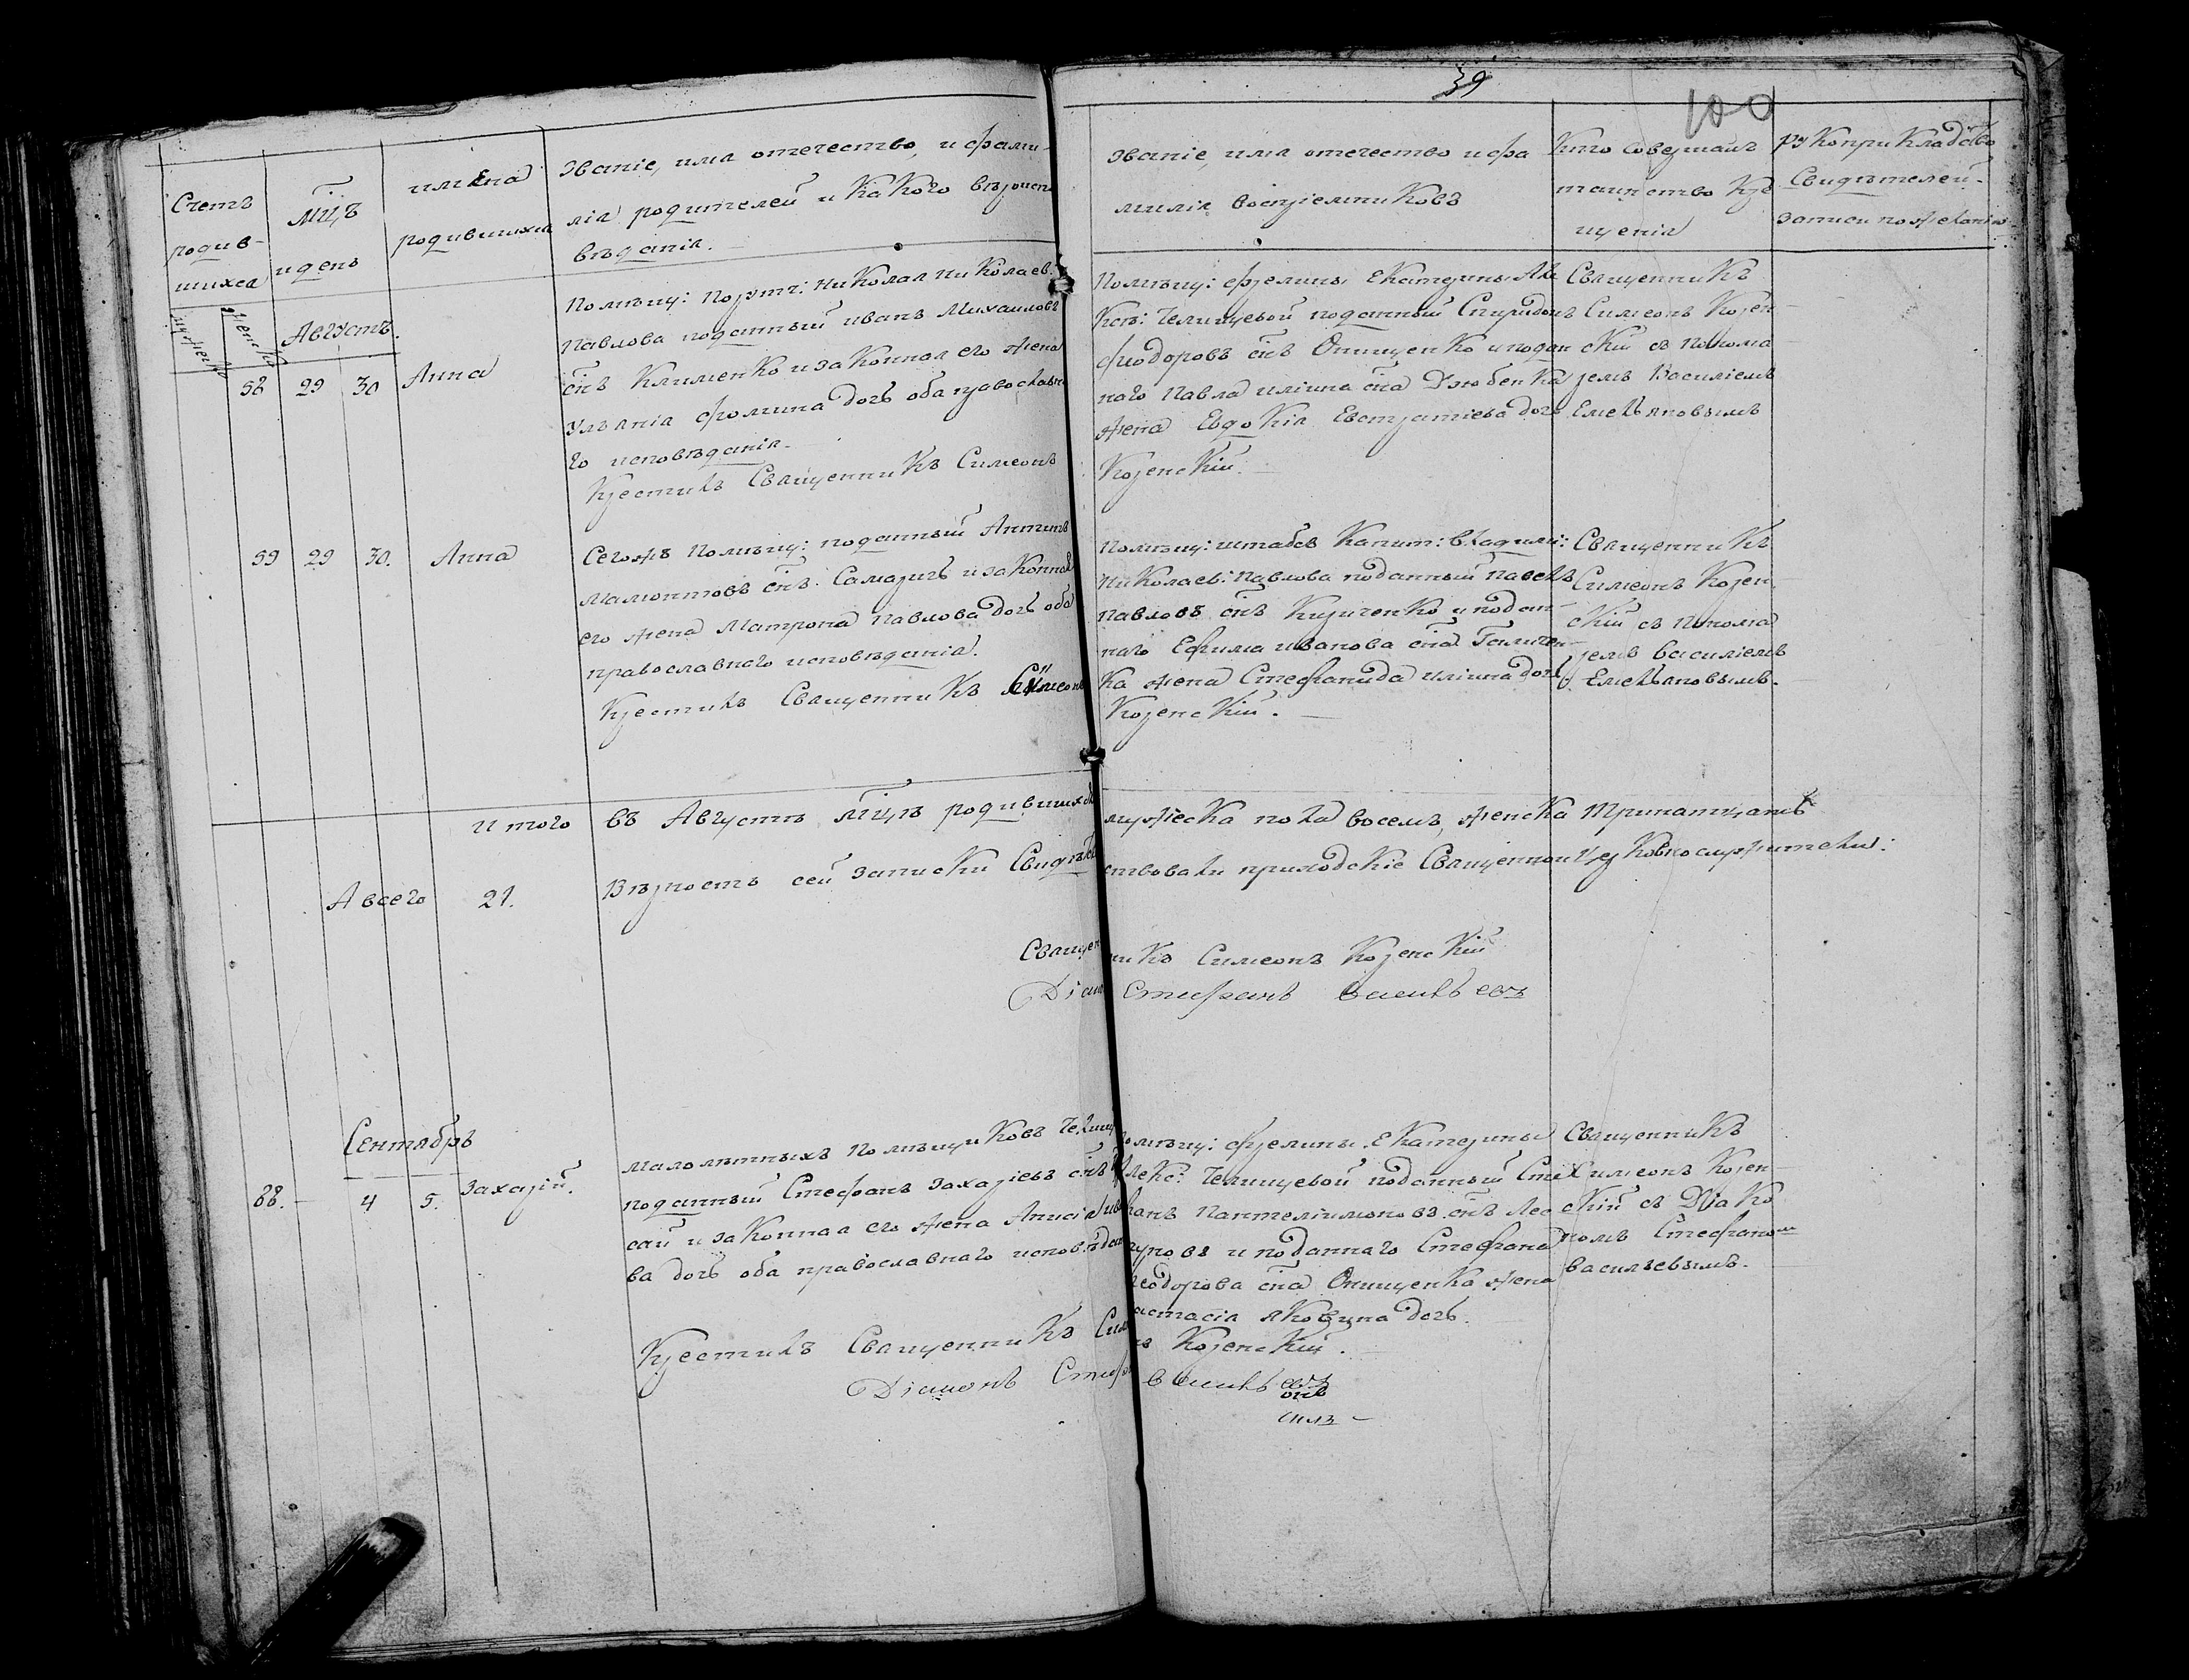 39
100
Счетъ родив-шихся
мцъ и день
имена родившихся
Званіе, имя отечество, и фами-
лія родителей и какого вѣроис-
вѣданія.
Званіе, имя отечество и фа
милія воспріемниковъ
Кто совершалъ
таинство кре
щенія
рукоприкладство
Свидѣтелей
записи по желанію
мужеска
женска
Августъ.
58 29 30 Анна
Помѣщ: порут: Николая Николаев:
Павлова поданный иванъ Михаиловъ
сн҃ъ Клименко и законная его жена
Ульянія фомина дочь оба православна
го исповѣданія.
Крестилъ Священникъ Симеонъ
Помѣщ: фрелины Екатерины Але
ксѣ: Челищевой поданный Спиридонъ
фиодоровъ сн҃ъ Онищенко и подан
ного Павла иліина сн҃а Дзюбенка
жена Евдокія Евстратіева дочь
Козенскій.
Священникъ
Симеонъ Козен
скій съ понома
ремъ Василіемъ
Емельяновымъ
59 29 30. Анна
Сегожъ помѣщ: поданный Антипъ
Мамонтовъ сн҃ъ Самаричъ и законная
его жена Матрона Павлова дочь оба
православнего исповѣданія.
Крестилъ Священникъ Симеонъ
Помѣщ: штабсъ Капит: Владими:
Николаев: Павлова поданный Павелъ
Павловъ сн҃ъ Кириченко и подан-
наго Ефима иванова сн҃а
ка жена Стефанида иліина дочь
Козенскій.
Священникъ
Симеонъ Козен
скій съ понома
ремъ василіемъ
Емельяновымъ.
и того въ Августѣ мцѣ родившихся мужеска пола восемь, женска тринатцать
А всего 21. Вѣрность сей записки свидѣтельствовали приходскіе Священноцерковнослужители:
Священникъ Симеонъ Козенскій
Діаконъ Стефанъ васильевъ
Сентябрь
88. 4 5. Захарій.
Малолѣтныхъ помѣщиковъ Челищ
поданный Стефанъ Захаріевъ сн҃ъ
сай и законная его жена Анисія
ва дочь оба православнаго исповѣдан
Крестилъ Священникъ Сим
Діаконъ Стеф
помѣщ: фрелины Екатерины
Алекс: Челищевой поданный Сте
фанъ Пантелѣимоновъ сн҃ъ
и поданнаго Стефана
феодорова сн҃а Онищенка жена
астасія яковлена дочь.
нъ Козенскій.
васильевъ
Священникъ
Симеонъ Козен
скій съ Діако
номъ Стефаном
василъевымъ.